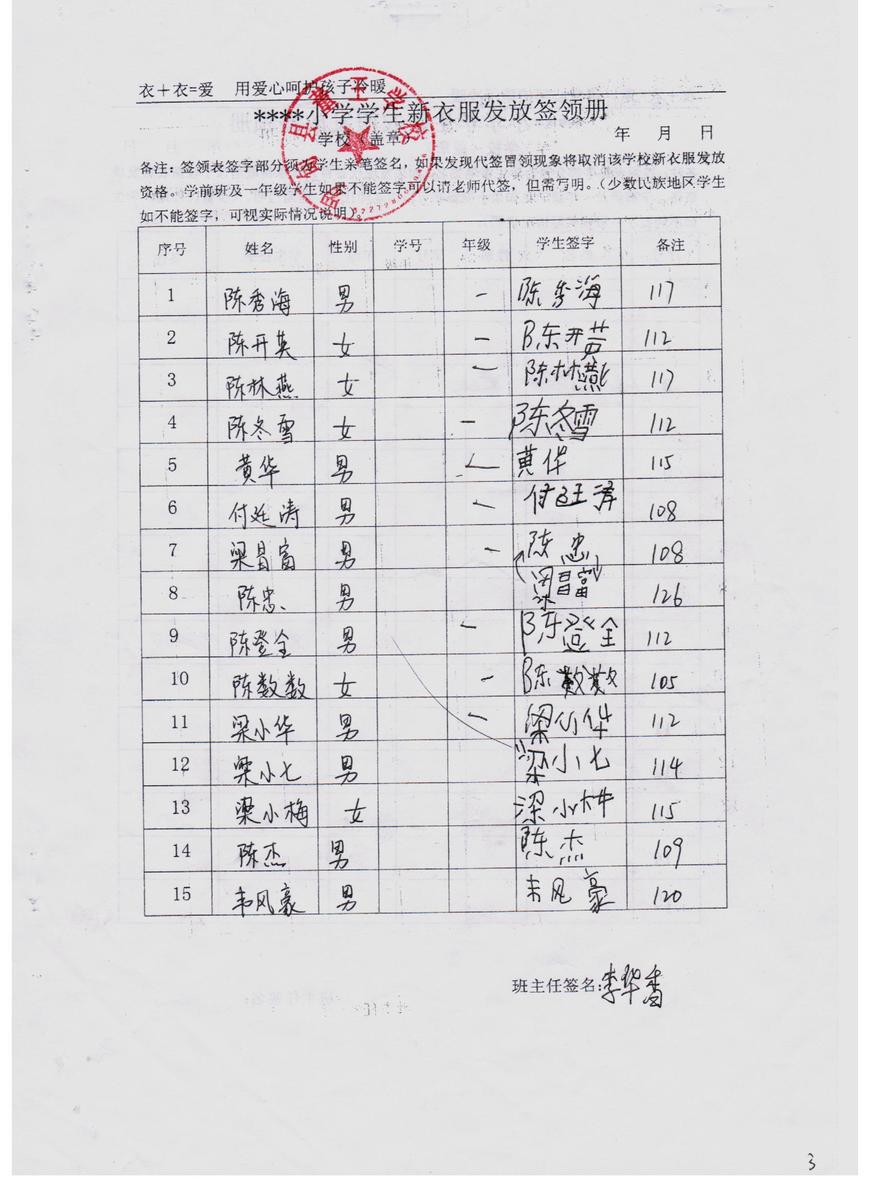 衣+衣=爱 用爱心呵护孩子冷暖
****小学学生新衣服发放签领册
学校(盖章) 年 月 日
备注:签领表签字部分须为学生亲笔签名,如果发现代签冒领现象将取消该学校新衣服发放
资格。学前班及一年级学生如果不能签字可以请老师代签,但需写明。(少数民族地区学生
如不能签字,可视实际情况说明)。
序号 姓名 性别 学号 年级 学生签字 备注
1 陈秀海 男 一 陈秀海 117
2 陈开英 女 一 陈开英 112
3 陈林燕 女 一 陈林燕 117
4 陈冬雪 女 一 陈冬雪 112
5 黄华 男 一 黄华 115
6 付廷涛 男 一 付廷涛 108
7 梁昌富 男 一 陈忠 108
8 陈忠 男 梁昌富 126
9 陈登全 男 一 陈登全 112
10 陈数数 女 一 陈数数 105
11 梁小华 男 一 梁小华 112
12 梁小七 男 梁小七 114
13 梁小梅 女 梁小梅 115
14 陈杰 男 陈杰 109
15 韦风豪 男 韦风豪 120
班主任签名:李华香
3